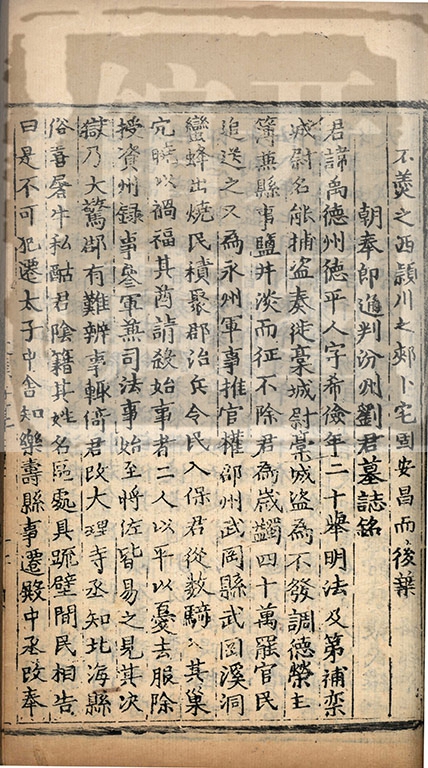 不羹之西潁川之郊卜宅固安昌而後葉
朝奉郎通判汾州劉君墓誌銘
君諱禹德州德平人字希儉年二十舉明法及第補栾
城尉名能捕盜奏徙藁城尉藁城盜為不發調德榮主
簿兼縣事鹽井淡而征不除君為歲蠲四十萬罷官民
追送之又為永州軍事推官權邵州武岡縣武岡溪洞
蠻蜂出燒民積聚郡治兵令民入保君從數騎入其巢
穴曉以禍福其酋請殺始事者二人以平以憂去服除
授資州錄事參軍兼司法事始至將佐皆易之見其决
獄乃大驚郡有難辨事輒倚君改大理寺丞知北海縣
俗喜屠牛私酤君陰籍其姓名區處具疏壁間民相告
曰是不可犯遷太子中舍知樂壽縣事遷殿中丞改奉